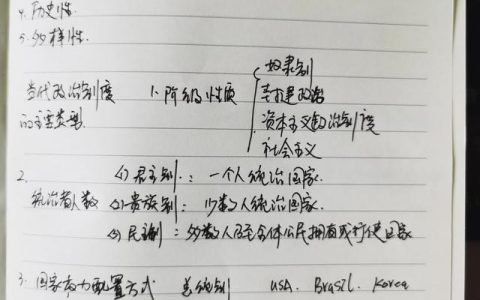 4. 历史性
5. 多样性.
当代政治制度
的主要类型.
1. 阶级性质
奴隶制
封建政治
资本主义政治制度
社会主义
2.
统治者人数
(1) 君主制: 一个人统治国家.
(2) 贵族制: 少数人统治国家.
(3) 民主制: 多数人乃至全体公民拥有或行使国家
3. 国家权力配置方式 总统制 USA. Brazil. Korea